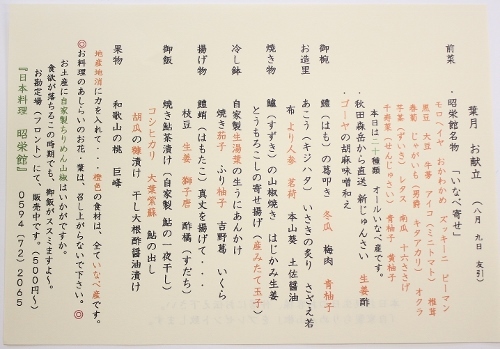 葉月 お献立 (八月 九日 友引)
前菜 ・昭栄館名物 「いなべ寄せ」
モロヘイヤ おかわかめ ズッキーニ ピーマン
黒豆 大豆 牛蒡 アイコ(ミニトマト) 椎茸
春菊 じゃがいも(男爵 キタアカリ) オクラ
芋茎(ずいき) レタス 南瓜 十六ささげ
千寿菜(せんじゅさい) 青柚子 黄柚子
本日は二十種類 オールいなべ産です。
・秋田森岳から直送 新じゅんさい 生姜酢
・ゴーヤの胡麻味噌和え
御椀 鱧(はも)の葛叩き 冬瓜 梅肉 青柚子
お造里 あこう(キジハタ) いさきの炙り さざえ若布 より人参 茗荷 本山葵 土佐醤油
焼き物 鱸(すずき)の山椒焼き はじかみ生姜
とうもろこしの寄せ揚げ(産みたて玉子)
冷し鉢 自家製生湯葉の生うにあんかけ
焼き茄子 ふり柚子 吉野葛 いくら
揚げ物 鱧蛸(はもたこ)真丈を揚げて・・・
枝豆 生姜 獅子唐 酢橘(すだち)
御飯 焼き鮎茶漬け(自家製 鮎の一夜干し)
コシヒカリ 大葉紫蘇 鮎の出し
胡瓜の糠漬け 干し大根酢醤油漬け
果物 和歌山の桃 巨峰
地産地消に力を入れて・・・橙色の食材は、全ていなべ産です。
◎お料理のあしらいのお花・葉は、召し上がらないで下さい。◎
お土産に自家製ちりめん山椒はいかがですか。
食欲が落ちるこの時期でも、御飯がススミますよ~。
お勘定場(フロント)にて、販売中です。(600円~)
『日本料理 昭栄館』 0594(72)2065